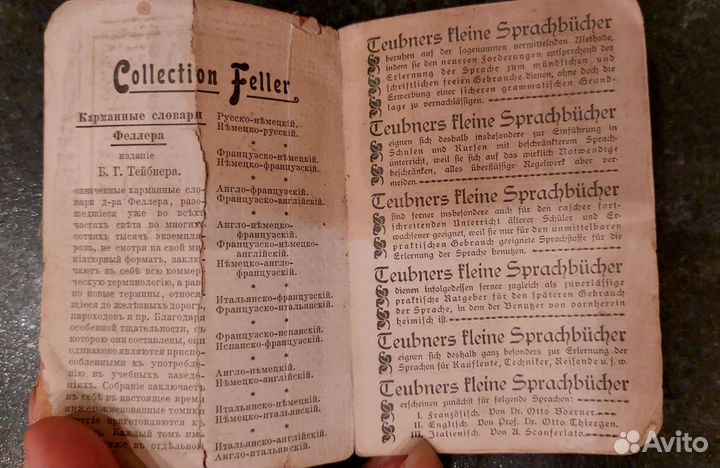 Collection Feller
Карманные словари
Феллера
издание
Б. Г. Тейбнера.
означенные карманные сло-
вари д-ра Феллера, разо-
шедшiеся уже во всѣхъ
частяхъ свѣта во многихъ
сотняхъ тысячъ экземпля-
ровъ, не смотря на свой ми-
нiатюрный форматъ, заклю-
чаютъ въ себѣ всю коммер-
ческую терминологiю, а рав-
но новые термины, относя-
щiеся до желѣзныхъ дорогъ,
пароходовъ и пр. Благодаря
особенной тщательности, съ
которою они составлены, они
одинаково являются приспо-
собленными къ употребле-
нiю въ учебныхъ заведе-
нiяхъ. Собранiе заключаетъ
въ себѣ въ настоящее время
нижепоименованные томики
другiе приготовляются къ
Каждый томъ имѣ
даже въ отдѣльной
Русско-нѣмецкiй.
Нѣмецко-русскiй.
* *
Французско-нѣмецкiй.
Нѣмецко-французскiй.
* *
Англо-французскiй.
Французско-англiйскiй.
* *
Англо-нѣмецко-
французскiй.
Французско-нѣмецко-
англiйскiй.
Нѣмецко-англо-
французскiй.
* *
Итальянско-французскiй.
Французско-итальянскiй.
* *
Французско-испанскiй.
Испанско-французскiй.
* *
Англо-нѣмецкiй.
Нѣмецко-англiйскiй.
* *
Итальянско-нѣмецкiй.
Нѣмецко-итальянскiй.
* *
Итальянско-англiйскiй.
Англо-итальянскiй.
Teubners kleine Sprachbücher
beruhen auf der sogenannten vermittelnden Methode,
indem sie den neueren Forderungen entsprechend der
Erlernung der Sprache zum mündlichen und
schriftlichen freien Gebrauche dienen, ohne doch die
Erwerbung einer sicheren grammatischen Grund-
lage zu vernachlässigen.
Teubners kleine Sprachbücher
eignen sich deshalb insbesondere zur Einführung in
Schulen und Kursen mit beschränkterem Sprach-
unterricht, weil sie sich auf das wirklich Notwendige
beschränken, alles überflüssige Regelwerk aber ver-
meiden.
Teubners kleine Sprachbücher
sind ferner insbesondere auch für den rascher fort-
schreitenden Unterricht älterer Schüler und Er-
wachsener geeignet, weil sie nur für den unmittelbaren
praktischen Gebrauch geeignete Sprachstoffe für die
Erlernung der Sprache benutzen.
Teubners kleine Sprachbücher
dienen infolgedessen ferner zugleich als zuverlässige
praktische Ratgeber für den späteren Gebrauch
der Sprache, in dem der Benutzer von vornherein
heimisch ist.
Teubners kleine Sprachbücher
eignen sich deshalb ganz besonders zur Erlernung der
Sprachen für Kaufleute, Techniker, Reisende u. s. w.
Teubners kleine Sprachbücher
erscheinen zunächst für folgende Sprachen:
I. Französisch. Von Dr. Otto Boerner.
II. Englisch. Von Prof. Dr. Otto Thiergen.
III. Italienisch. Von A. Scanferlato.
Avito